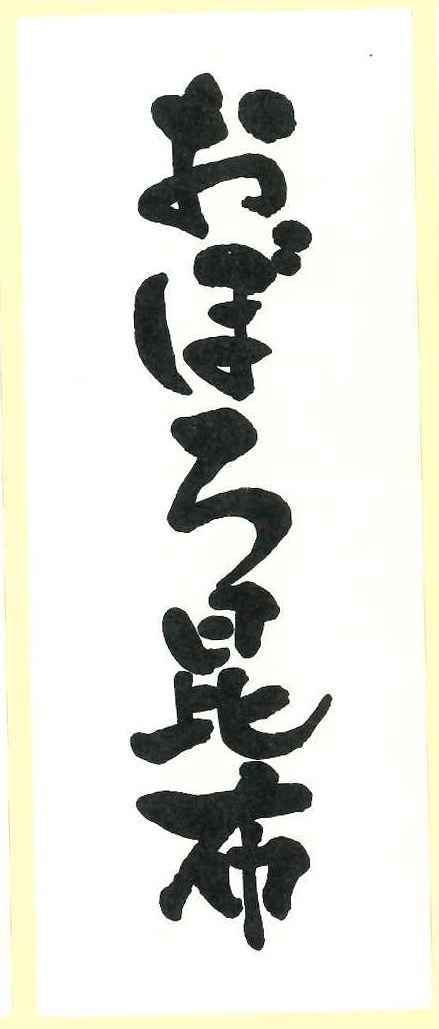 おぼろ昆布